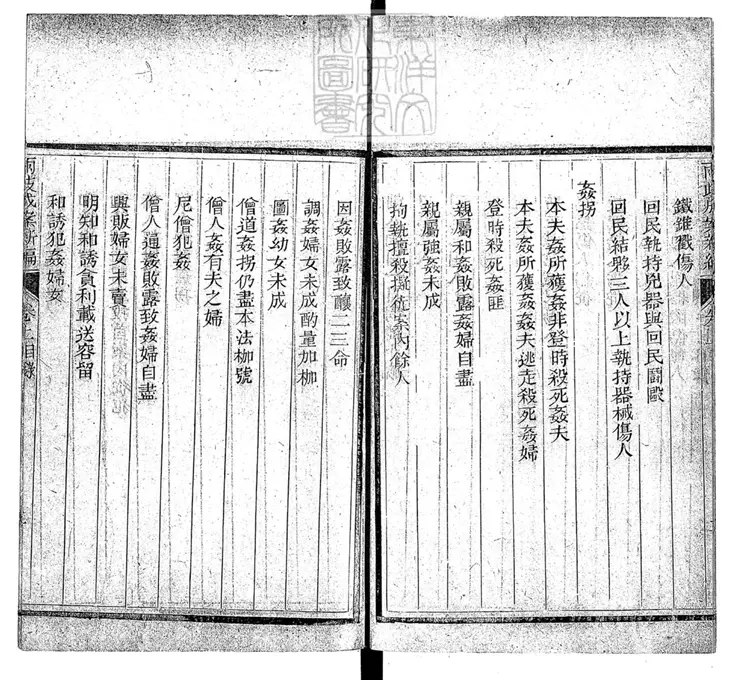 東洋文
化研究
所圖書
鐵錐戳傷人
回民執持兇器與回民鬬毆
回民結夥三人以上執持器械傷人
姦拐
本夫姦所獲姦非登時殺死姦夫
本夫姦所獲姦姦夫逃走殺死姦婦
登時殺死姦匪
親屬和姦敗露姦婦自盡
親屬強姦未成
拘執擅殺擬絞案內餘人
因姦敗露致釀二三命
調姦婦女未成酌量加枷
圖姦幼女未成
僧道姦拐仍盡本法枷號
僧人姦有夫之婦
尼僧犯姦
僧人通姦敗露致姦婦自盡
興販婦女未賣
明知和誘貪利載送容留
和誘犯姦婦女
兩歧成案新編 卷二目錄